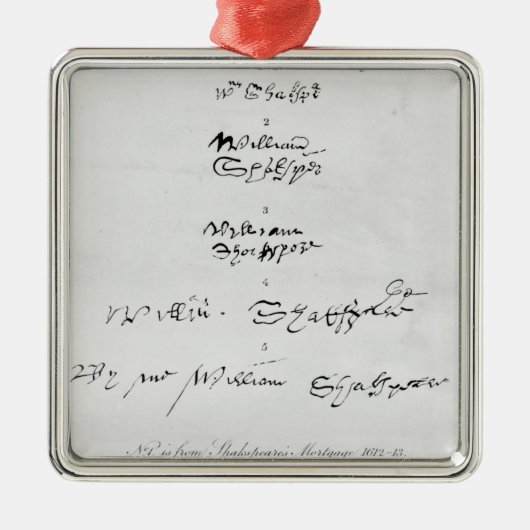 Wm Shakspē
2
William
Shakspēr
3
William
Shakspere
4
Willm. Shakspere
5
By me William Shakspeare
No. 1 is from Shakspeare's Mortgage 1612-13.